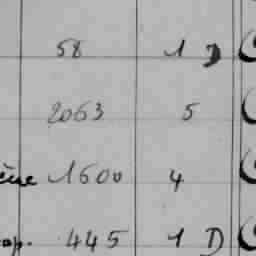 58 1 D
2063 5
1600 4
ap. 445 1 D